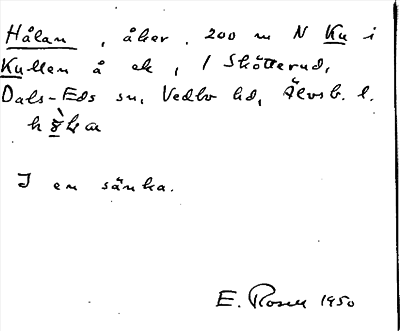 Hålan, åker, 200 m N Ku i
Kullen å ek, 1 Skötterud,
Dals-Eds sn, Vedbo hd, Älvsb. l.
I en sänka.
E. Rosell 1950